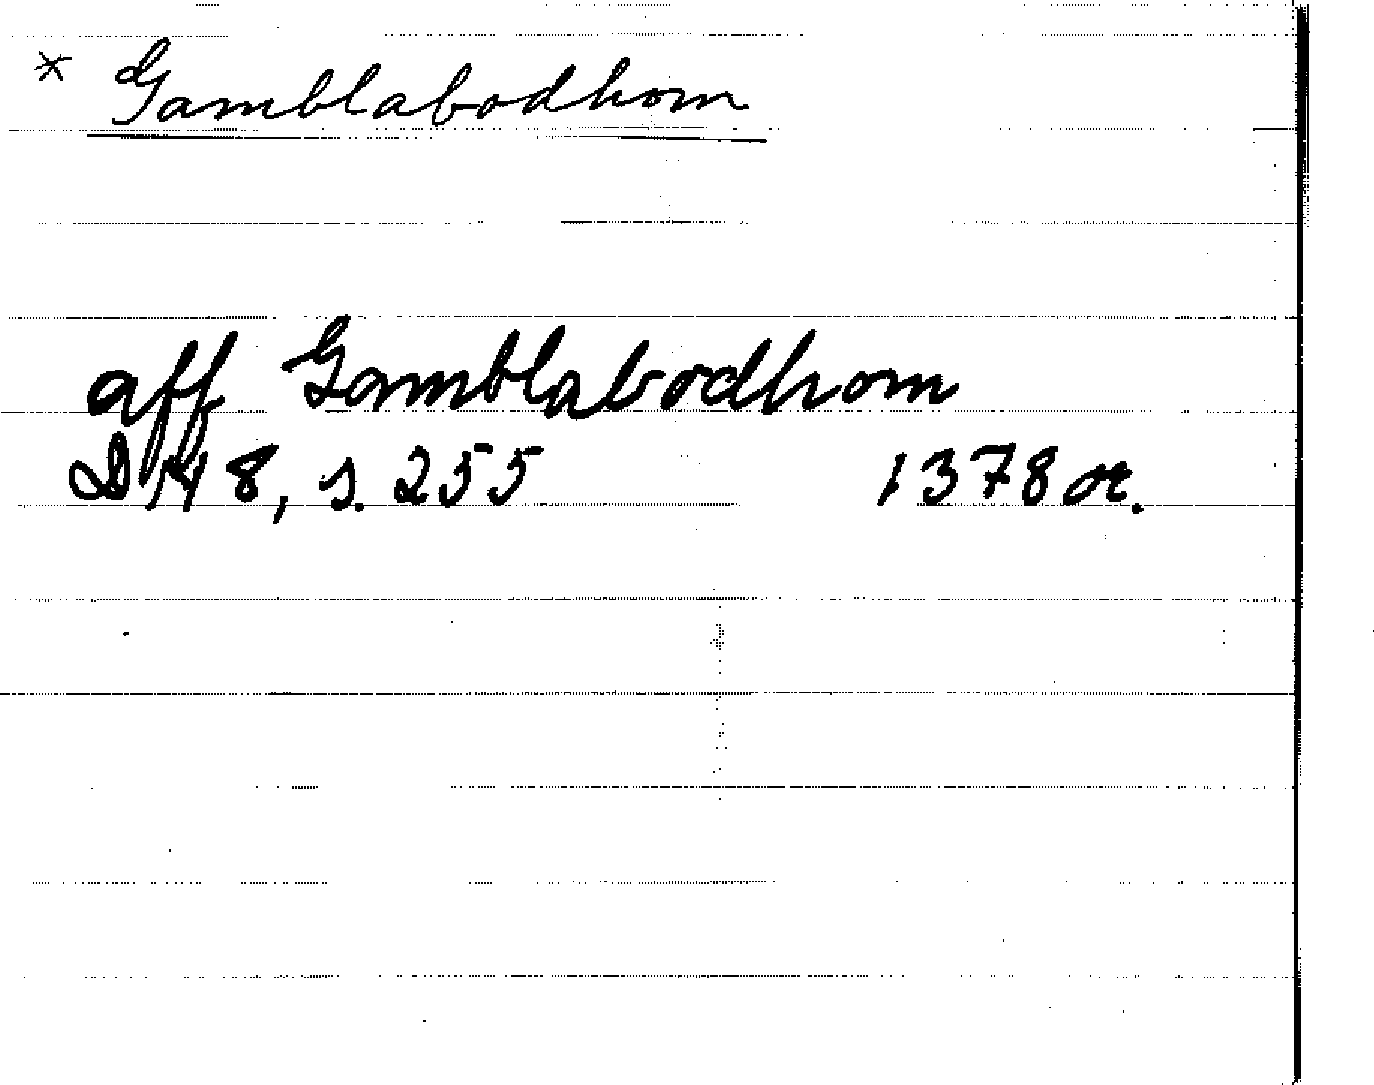 * Gamblabodhom
aff Gamblabodhom
DN 8, s. 255 1378 or.